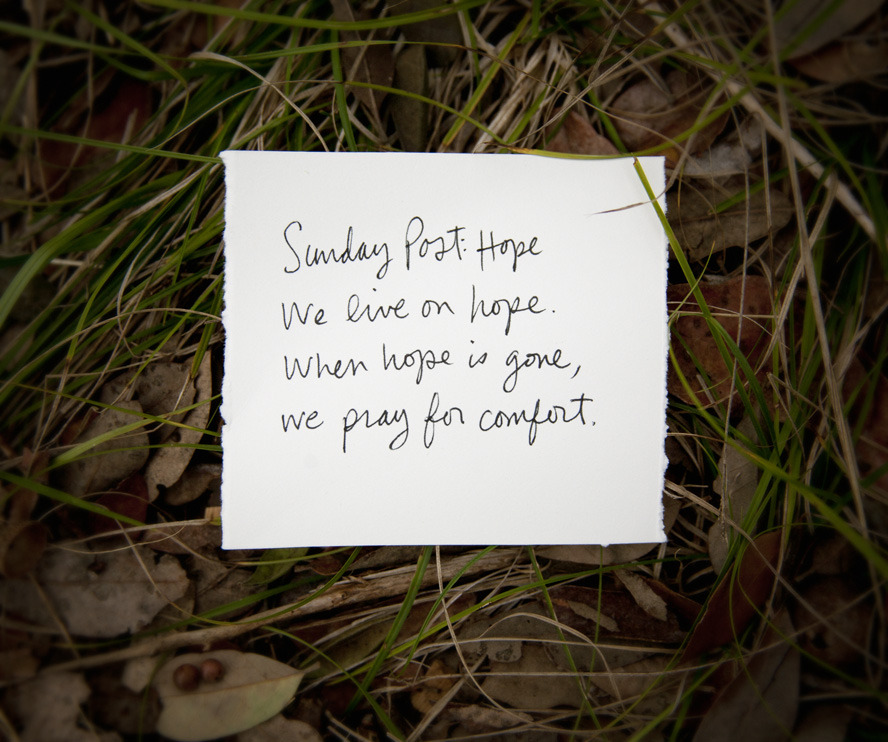 Sunday Post: Hope
We live on hope.
When hope is gone,
we pray for comfort.